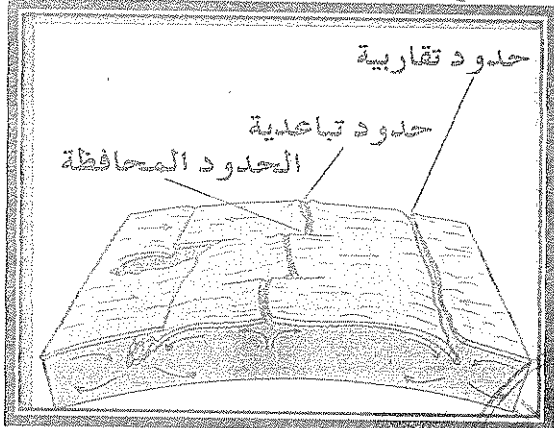 حدود تقاربية
حدود تباعدية
الحدود المحافظة